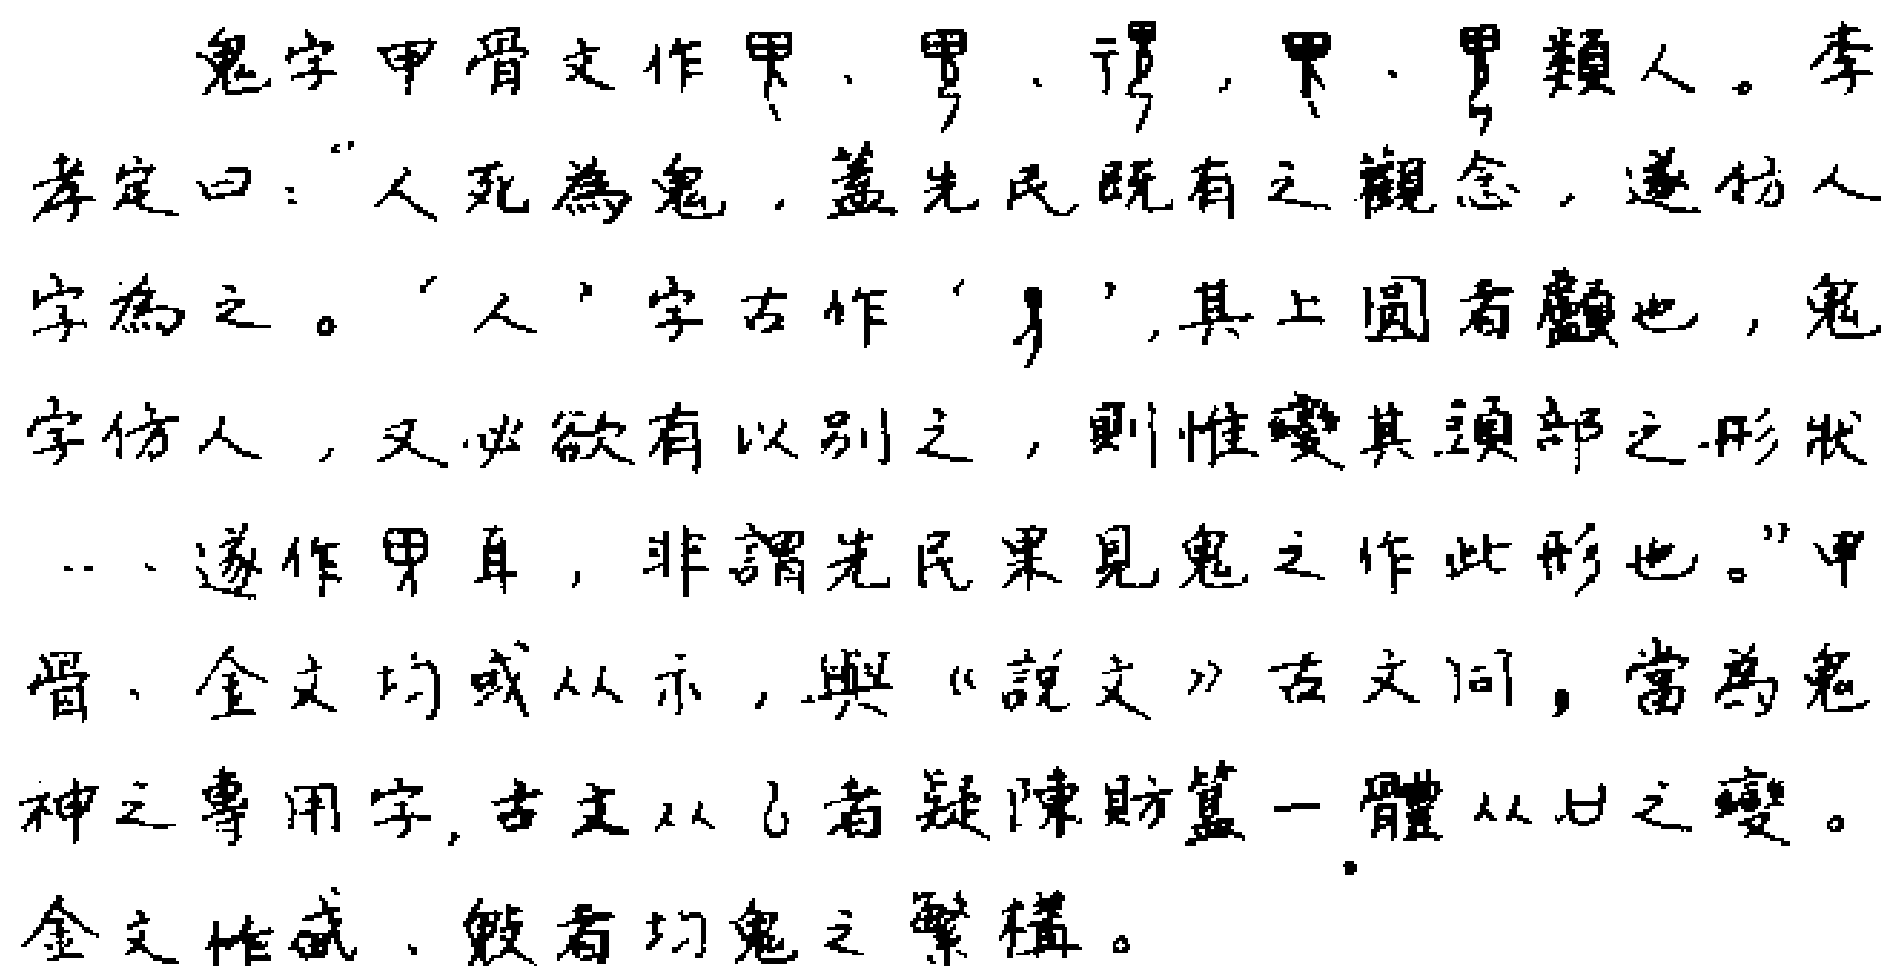 鬼字甲骨文作、、,、類人。李
孝定曰:“人死為鬼,蓋先民既有之觀念,遂仿人
字為之。‘人’字古作‘’,其上圓者顱也,鬼
字仿人,又必欲有以別之,則惟變其頭部之形狀
……遂作耳,非謂先民果見鬼之作此形也。”甲
骨、金文均或从示,與《說文》古文同,當為鬼
神之專用字,古文从者疑陳肪簋一體从廿之變。
金文作、者均鬼之繁構。